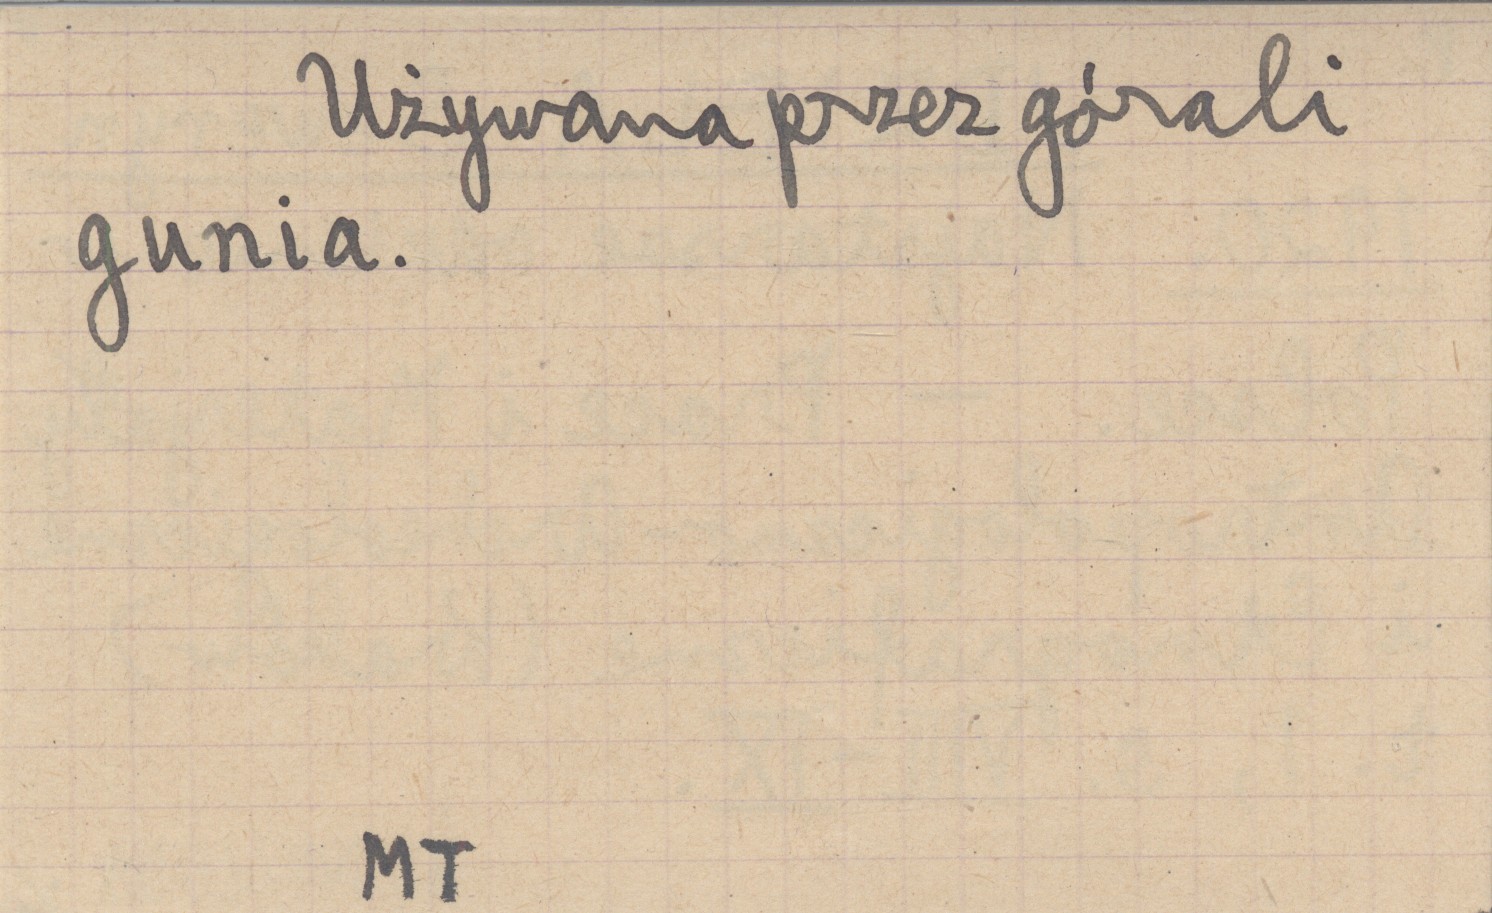 Używana przez górali
gunia.
MT